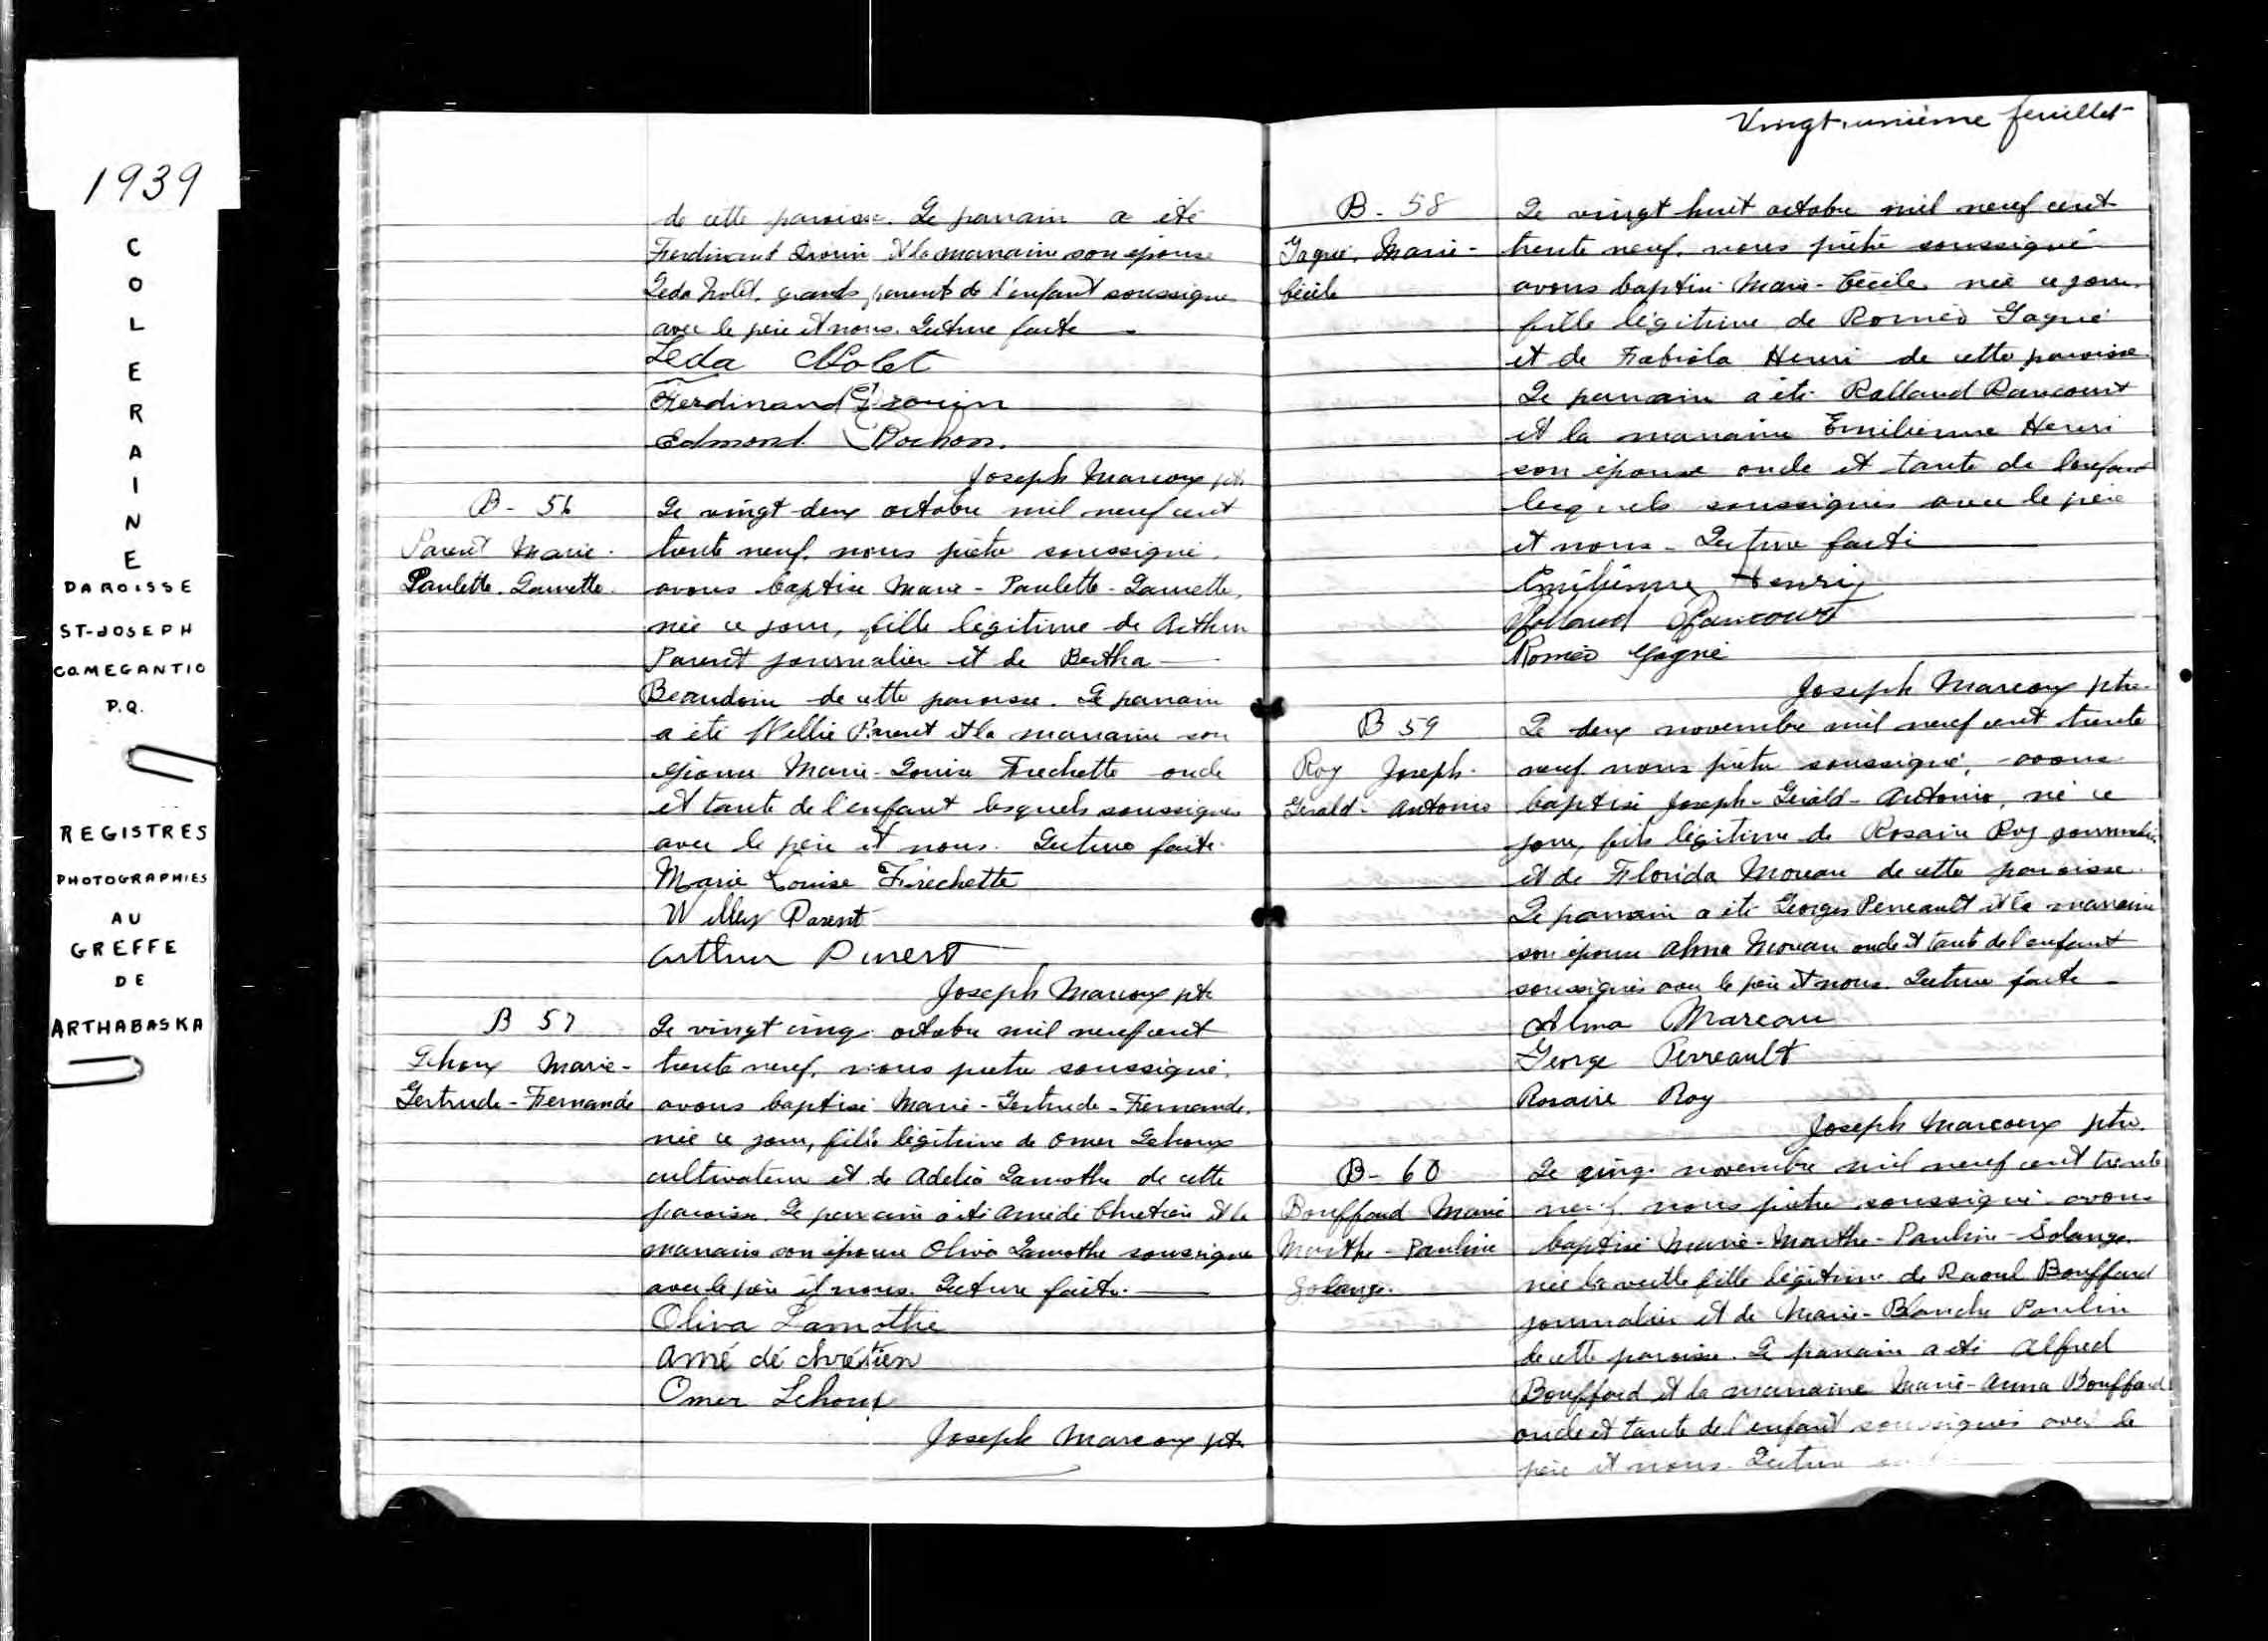 1939
COLERAINE
PAROISSE
ST-JOSEPH
CO.MEGANTIC
P.Q.
REGISTRES
PHOTOGRAPHIES
AU
GREFFE
DE
ARTHABASKA
de cette paroisse. Le parrain a été
Ferdinand Drouin et la marraine son épouse
Leda Nolet, grands parents de l'enfant soussignés
avec le père et nous. Lecture faite
Leda Nolet
Ferdinand Drouin
Edmond Rochon.
Joseph Marcoux ptr
B - 56
Parent Marie-
Paulette-Laurette.
Le vingt-deux octobre mil neuf cent
trente neuf, nous prêtre soussigné,
avons baptisé Marie-Paulette-Laurette,
née ce jour, fille légitime de Arthur
Parent journalier et de Bertha
Beaudoin de cette paroisse. Le parrain
a été Wellie Parent et la marraine son
épouse Marie-Louise Frechette oncle
et tante de l'enfant lesquels soussignés
avec le père et nous. Lecture faite.
Marie Louise Frechette
Willey Parent
Arthur Parent
Joseph Marcoux ptr
B 57
Lehoux Marie-
Gertrude-Fernande
Le vingt cinq octobre mil neuf cent
trente neuf, nous prêtre soussigné,
avons baptisé Marie-Gertrude-Fernande,
née ce jour, fille légitime de Omer Lehoux
cultivateur et de Adelia Lamothe de cette
paroisse. Le parrain a été Amédé Chretien et la
marraine son épouse Oliva Lamothe soussignés
avec le père et nous. Lecture faite.
Oliva Lamothe
Amé dé chrétien
Omer Lehoux
Joseph Marcoux ptr
Vingt-unième feuillet
B - 58
Gagné, Marie-
Cécile
Le vingt huit octobre mil neuf cent
trente neuf, nous prêtre soussigné
avons baptisé Marie-Cécile, née ce jour,
fille légitime de Roméo Gagné
et de Fabiola Henri de cette paroisse.
Le parrain a été Rolland Rancourt
et la marraine Emilienne Henri
son épouse oncle et tante de l'enfant
lesquels soussignés avec le père
et nous. Lecture faite
Emilienne Henri
Rolland Rancourt
Roméo Gagné
Joseph Marcoux ptre.
B 59
Roy Joseph-
Gerald-Antonio
Le deux novembre mil neuf cent trente
neuf nous prêtre soussigné, avons
baptisé Joseph-Gerald-Antonio, né ce
jour, fils légitime de Rosaire Roy journalier
et de Florida Moreau de cette paroisse.
Le parrain a été Georges Perreault et la marraine
son épouse Alma Moreau oncle et tante de l'enfant
soussignés avec le père et nous. Lecture faite
Alma Mareau
George Perreault
Rosaire Roy
Joseph Marcoux ptre.
B - 60
Bouffard Marie
Marthe-Pauline
Solange.
Le cinq novembre mil neuf cent trente
neuf, nous prêtre soussigné avons
baptisé Marie-Marthe-Pauline-Solange,
née la veille fille légitime de Raoul Bouffard
journalier et de Marie-Blanche Paulin
de cette paroisse. Le parrain a été Alfred
Bouffard et la marraine Marie-Anna Bouffard
oncle et tante de l'enfant soussignés avec le
père et nous. Lecture